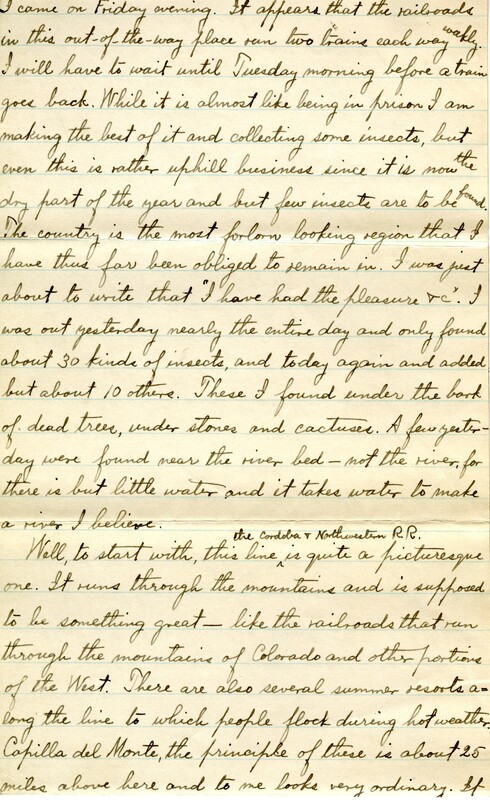 I came on Friday evening. It appears that the railroads
in this out-of-the-way place run two trains each way weekly.
I will have to wait until Tuesday morning before a train
goes back. While it is almost like being in prison I am
making the best of it and collecting some insects, but
even this is rather uphill business since it is now the
dry part of the year and but few insects are to be found.
The country is the most forlorn looking region that I
have thus far been obliged to remain in. I was just
about to write that "I have had the pleasure &c". I
was out yesterday nearly the entire day and only found
about 30 kinds of insects, and today again and added
but about 10 others. These I found under the bark
of dead trees, under stones and cactuses. A few yester-
day were found near the river bed — not the river, for
there is but little water and it takes water to make
a river I believe.
the Cordoba & Northwestern R.R.
Well, to start with, this line ^ is quite a picturesque
one. It runs through the mountains and is supposed
to be something great — like the railroads that run
through the mountains of Colorado and other portions
of the West. There are also several summer resorts a-
long the line to which people flock during hot weather.
Capilla del Monte, the principle of these is about 25
miles above here and to me looks very ordinary. It